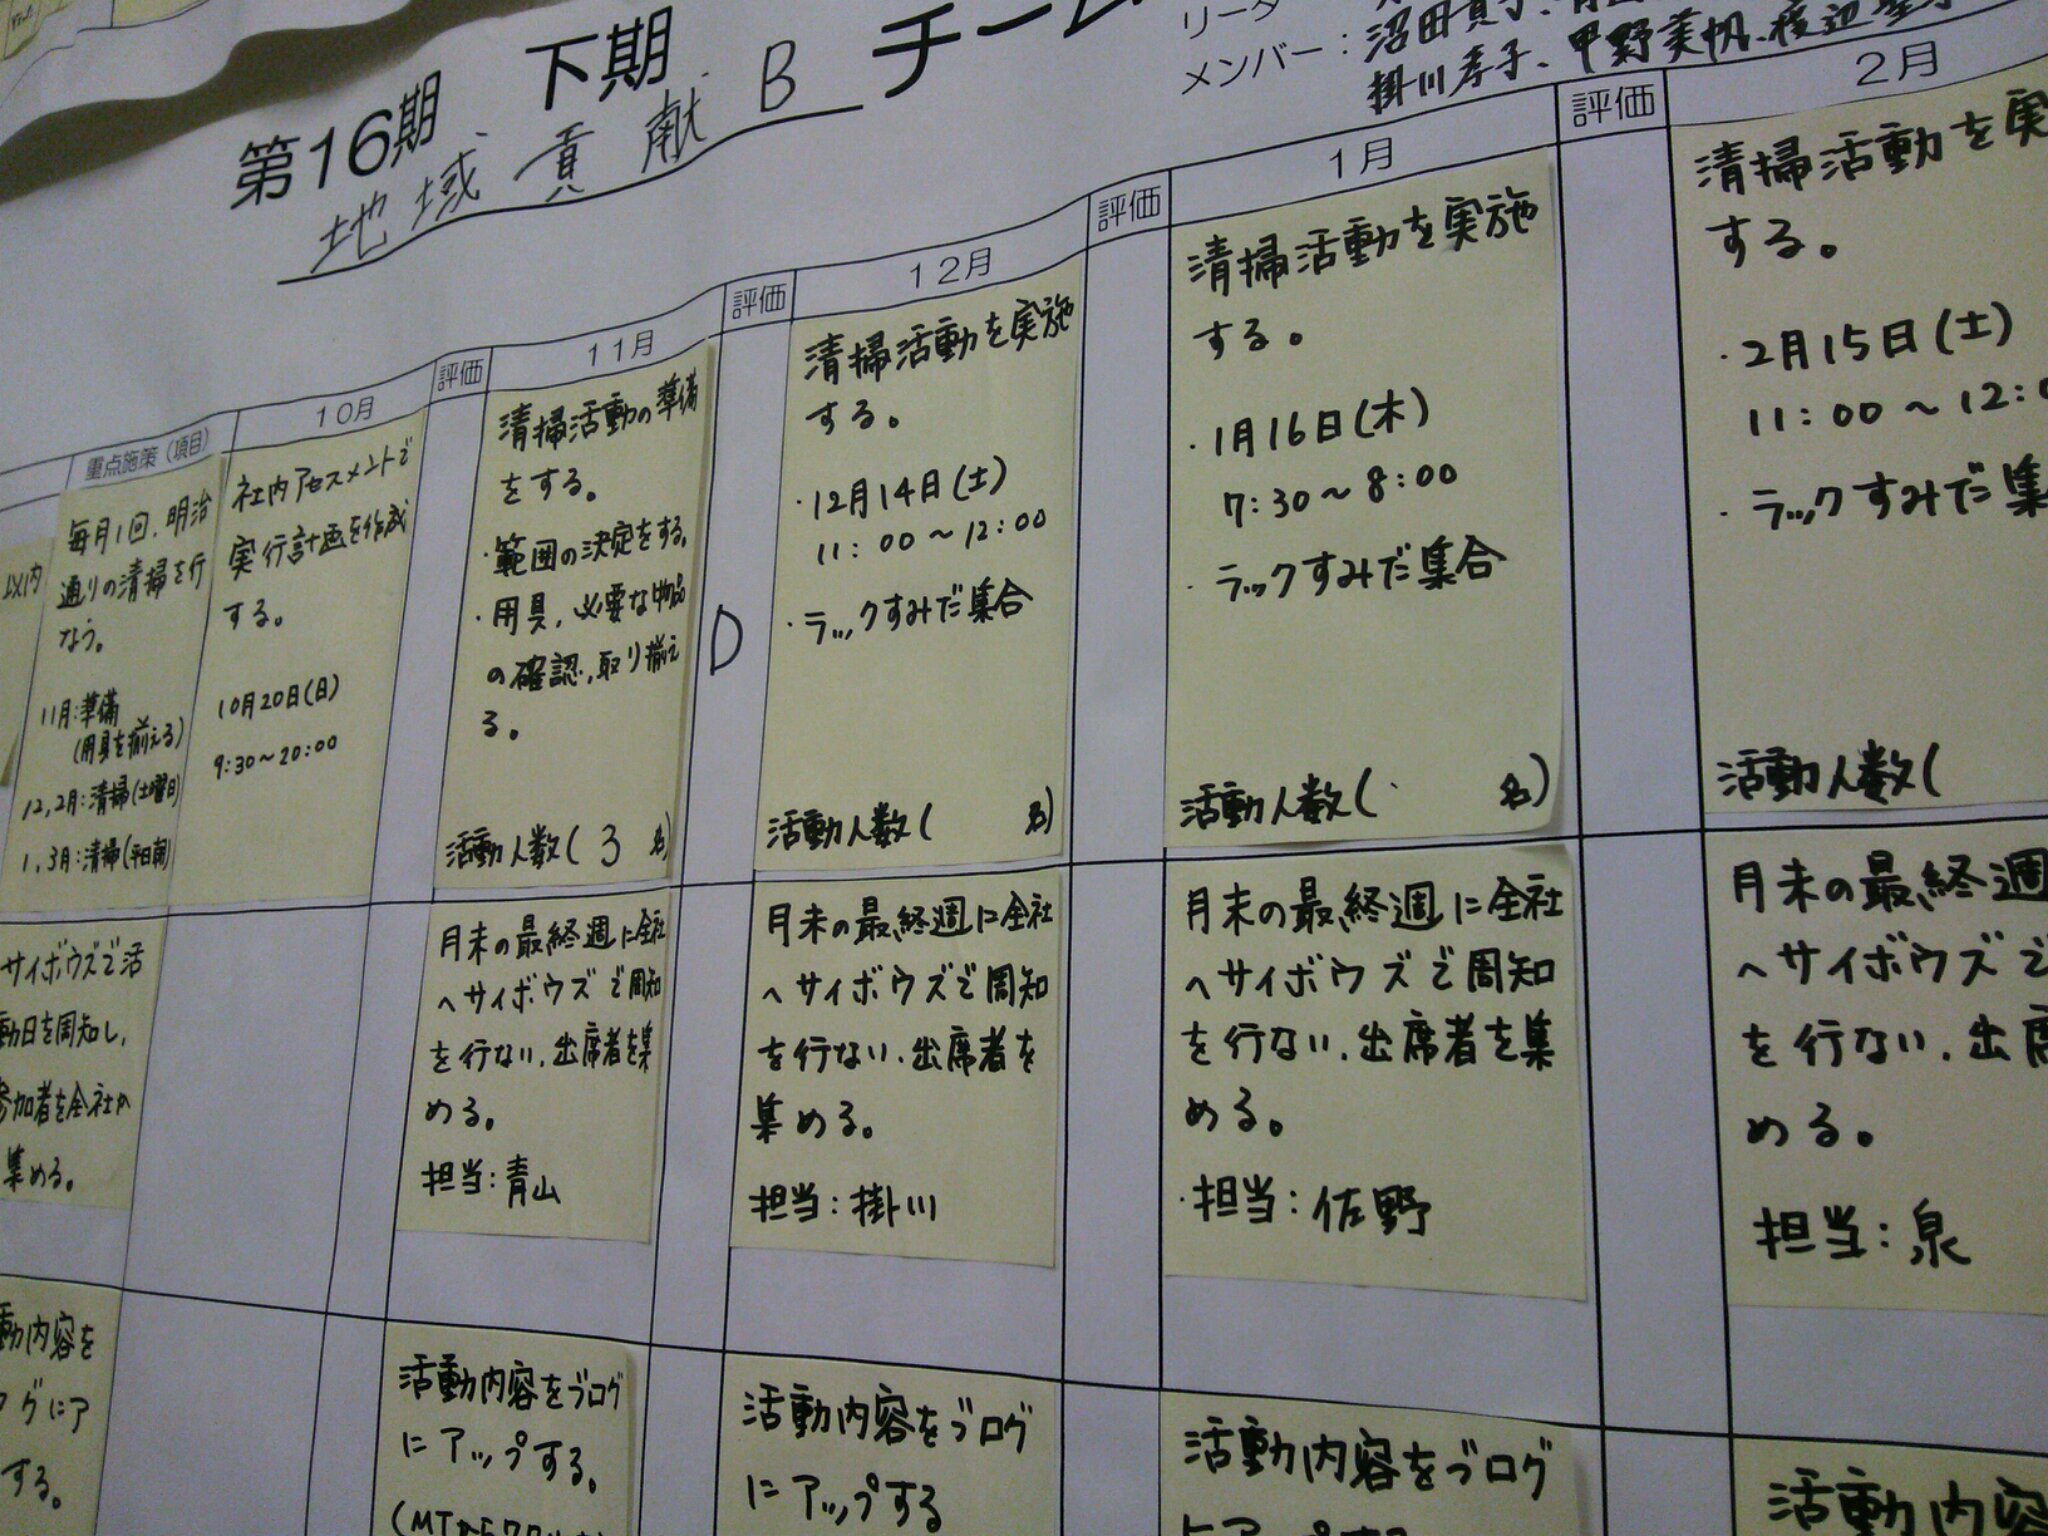 第16期 下期
地域貢献 B チーム
リーダ
メンバー：沼田
掛川孝子、甲野美帆、渡辺
重点施策（項目）
10月
評価
11月
評価
12月
評価
1月
評価
2月
以内
毎月1回、明治
通りの清掃を行
なう。
11月：準備
(用具を揃える)
12,2月：清掃(土曜日)
1,3月：清掃(平日朝)
社内アセスメントで
実行計画を作成
する。
10月20日(日)
9:30～20:00
清掃活動の準備
をする。
・範囲の決定をする。
・用具、必要な物品
の確認、取り揃え
る。
活動人数( 3 名)
D
清掃活動を実施
する。
・12月14日(土)
11:00～12:00
・ラックすみだ集合
活動人数( 名)
清掃活動を実施
する。
・1月16日(木)
7:30～8:00
・ラックすみだ集合
活動人数( 名)
清掃活動を実
する。
・2月15日(土)
11:00～12:0
・ラックすみだ集
活動人数(
サイボウズで活
動日を周知し、
参加者を全社か
集める。
月末の最終週に全社
へサイボウズで周知
を行ない、出席者を集
める。
担当：青山
月末の最終週に全社
へサイボウズで周知
を行ない、出席者を
集める。
担当：掛川
月末の最終週に全社
へサイボウズで周知
を行ない、出席者を集
める。
・担当：佐野
月末の最終週
へサイボウズで
を行ない、出席
める。
担当：泉
動内容を
グにア
する。
活動内容をブログ
にアップする。
活動内容をブログ
にアップする
活動内容をブログ
にアップする
活動内容